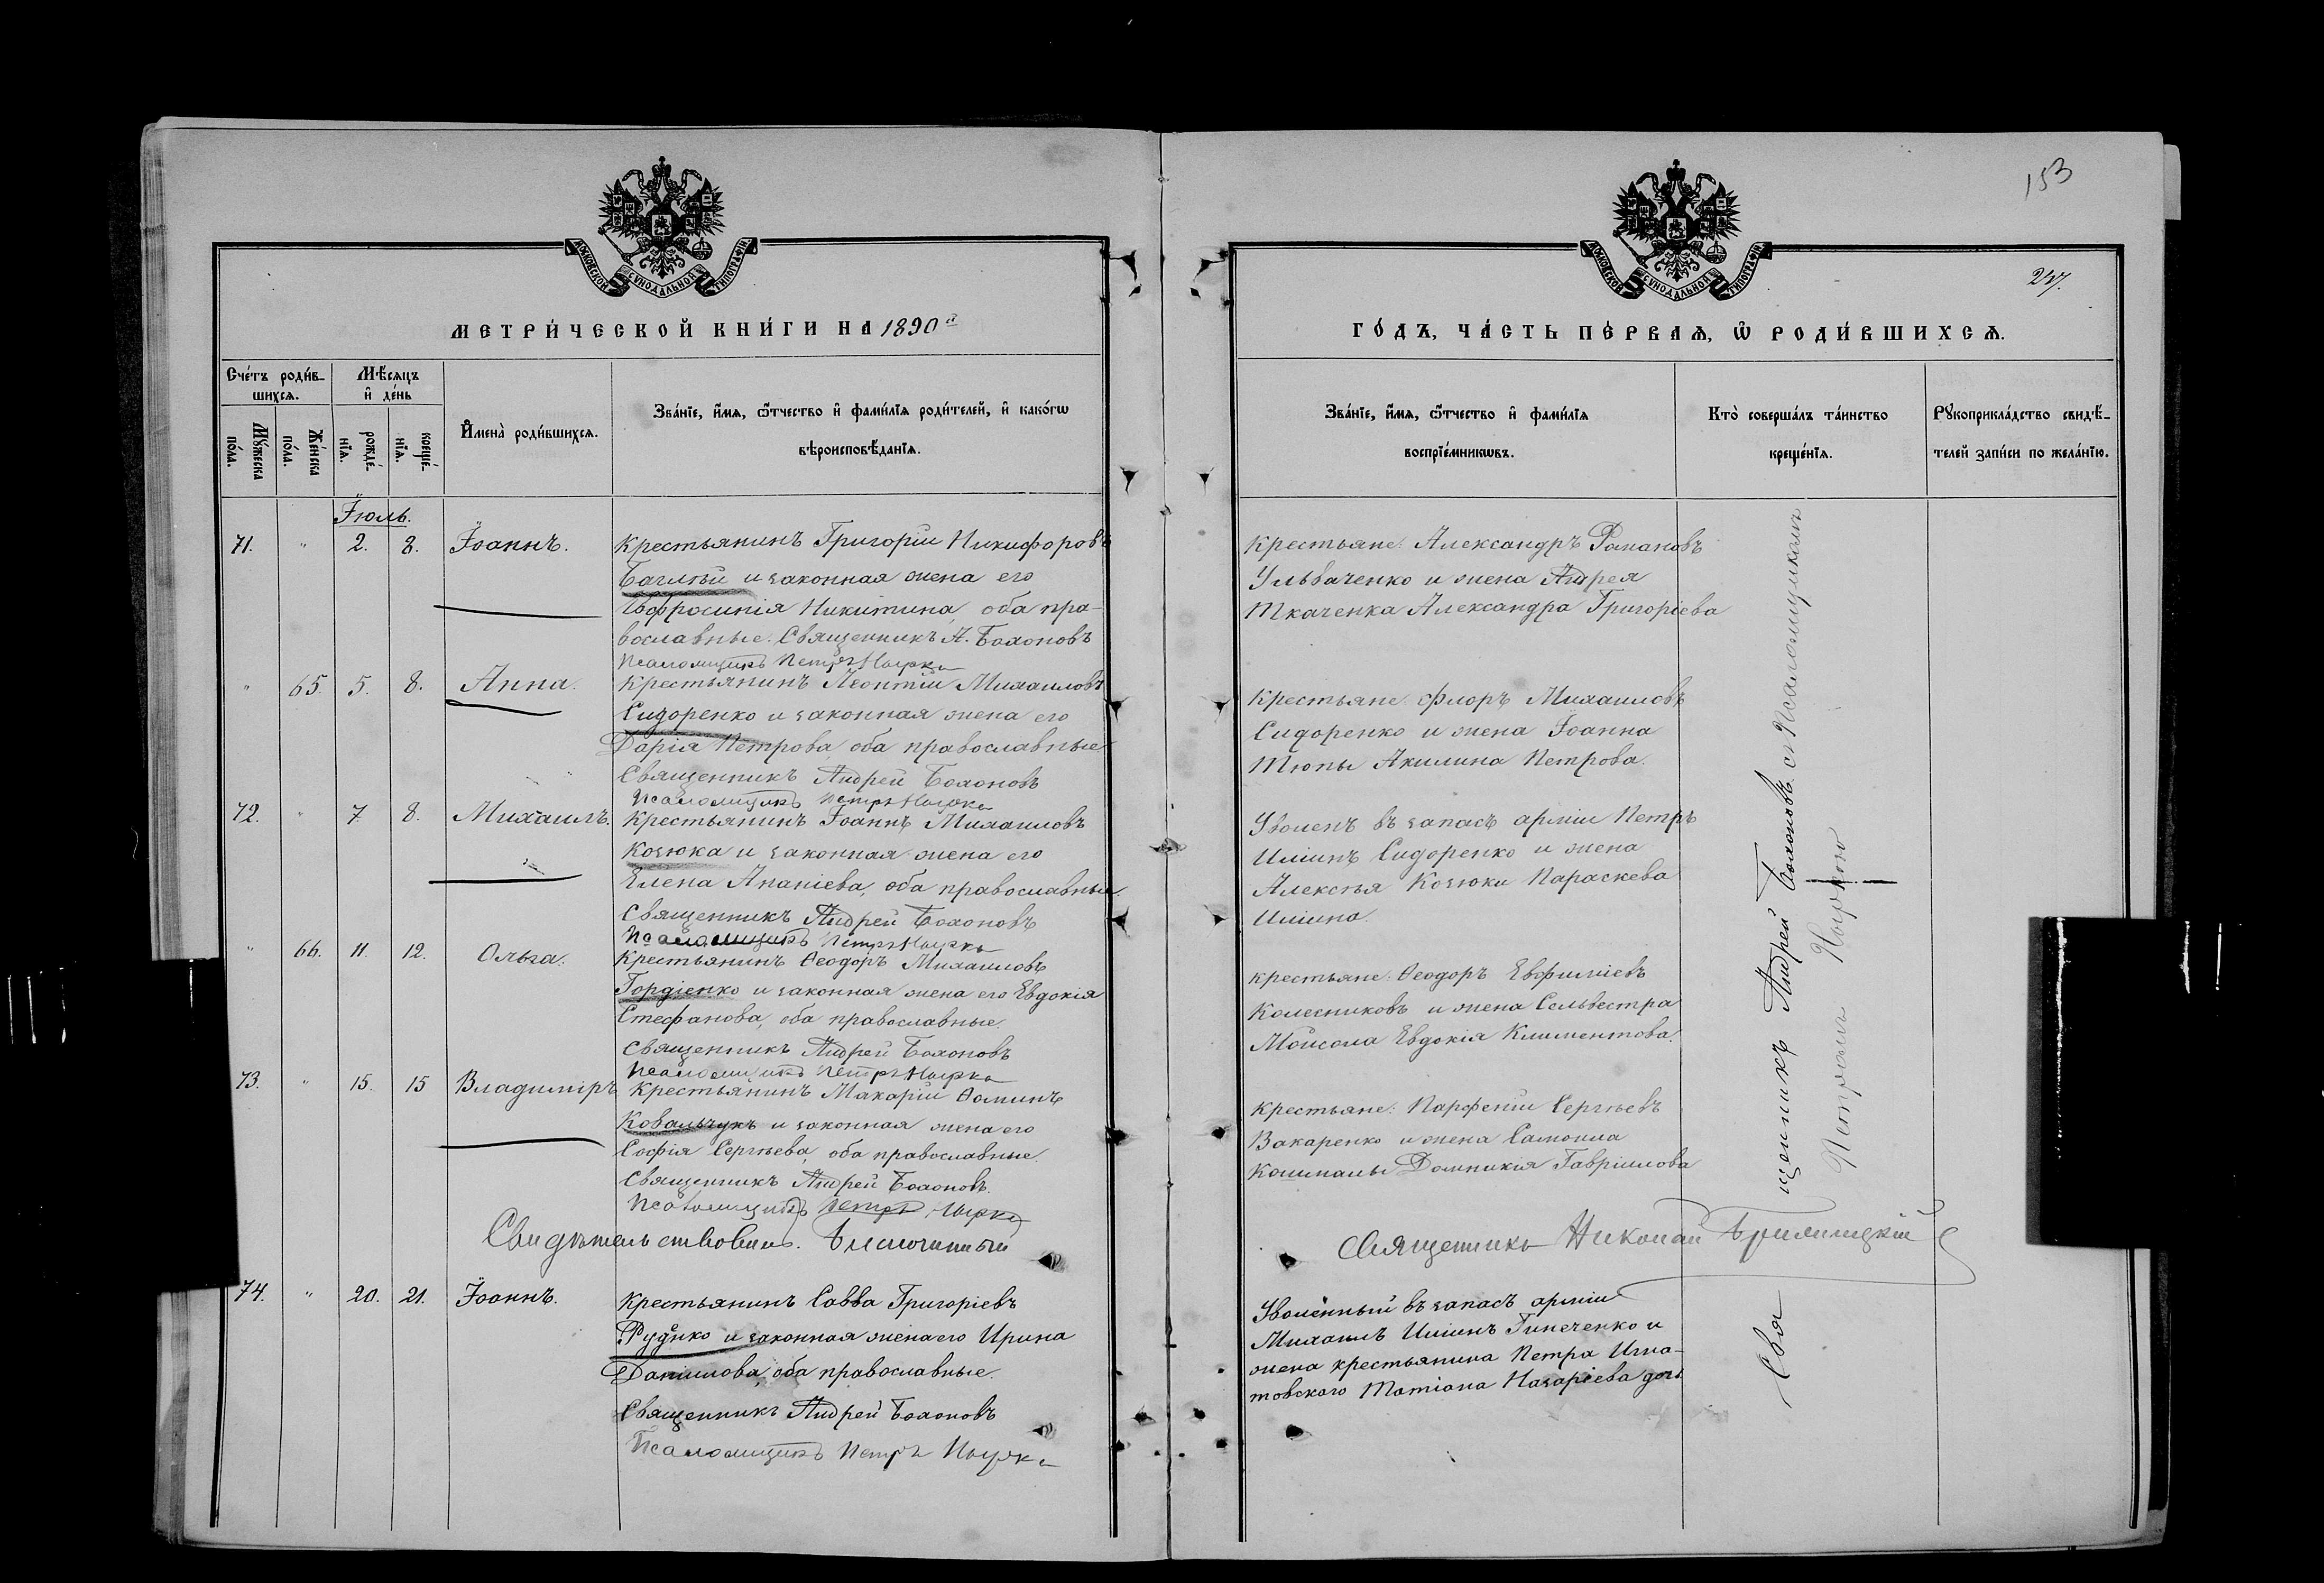 153
МОСКОВСКОЙ СѴНОДАЛЬНОЙ ТИПОГРАФІИ
МОСКОВСКОЙ СѴНОДАЛЬНОЙ ТИПОГРАФІИ
247.
МЕТРИ́ЧЕСКОЙ КНИ́ГИ НА 1890й
ГО́ДЪ, ЧА́СТЬ ПЕ́РВАѦ, Ѡ҆ РОДИ́ВШИХСѦ.
Сче́тъ роди́в-
шихсѧ.
Мѣ́сѧцъ
и҆ де́нь
Му́жеска
по́ла.
Же́нска
по́ла.
рожде́-
нїѧ.
креще́-
нїѧ.
И҆мена̀ роди́вшихсѧ.
Зва́нїе, и҆́мѧ, ѻ҆́тчество и҆ фами́лїѧ роди́телей, и҆ како́гѡ
вѣроисповѣ́данїѧ.
Зва́нїе, и҆́мѧ, ѻ҆́тчество и҆ фами́лїѧ
воспрїе́мникѡвъ.
Кто̀ соверша́лъ та́инство
креще́нїѧ.
Рꙋкоприкла́дство свидѣ́-
телей за́писи по жела́нїю.
Іюль.
71. " 2. 8. Іоаннъ.
Крестьянинъ Григорій Никифоровъ
Баглый и законная жена его
Евфросинія Никитина, оба пра-
вославные. Священникъ А. Бохоновъ
Псаломщикъ Петръ
Крестьяне: Александръ Романовъ
Ульваченко и жена Андрея
Ткаченка Александра Григоріева
" 65. 5. 8. Анна.
Крестьянинъ Леонтій Михаиловъ
Сидоренко и законная жена его
Дарія Петрова, оба православные
Священникъ Андрей Бохоновъ
Псаломщикъ Петръ
Крестьяне: Флоръ Михаиловъ
Сидоренко и жена Іоанна
Тюпы Акилина Петрова.
72. " 7. 8. Михаилъ.
Крестьянинъ Іоаннъ Михаиловъ
Козюка и законная жена его
Елена Ананіева, оба православные
Священникъ Андрей Бохоновъ
Псаломщикъ Петръ
Уволенъ въ запасъ арміи Петръ
Иліинъ Сидоренко и жена
Алексѣя Козюки Параскева
Иліина.
" 66. 11. 12. Ольга.
Крестьянинъ Ѳеодоръ Михаиловъ
Гордіенко и законная жена его Евдокія
Стефанова, оба православные.
Священникъ Андрей Бохоновъ
Псаломщикъ Петръ
Крестьяне: Ѳеодоръ Евфиміевъ
Колесниковъ и жена Сельвестра
Евдокія Климентова.
73. " 15. 15 Владиміръ
Крестьянинъ Макарій Ѳоминъ
Ковальчукъ и законная жена его
Софія Сергѣева, оба православные.
Священникъ Андрей Бохоновъ.
Псаломщикъ Петръ
Крестьяне: Парфеній Сергѣевъ
Вакаренко и жена Самоила
Кошмалы Домникія Гавріилова
Свидѣтельствовалъ. Благочинный
Священникъ Николай
74. " 20. 21. Іоаннъ.
Крестьянинъ Савва Григоріевъ
Рудько и законная жена его Ирина
Даніилова, оба православные.
Священникъ Андрей Бохоновъ
Псаломщикъ Петръ
Уволенный въ запасъ арміи
Михаилъ Иліинъ и
жена крестьянина Петра Игна-
товскаго Татіана Назаріева дочь
Священникъ Андрей Бохоновъ съ Псаломщикомъ
Петромъ